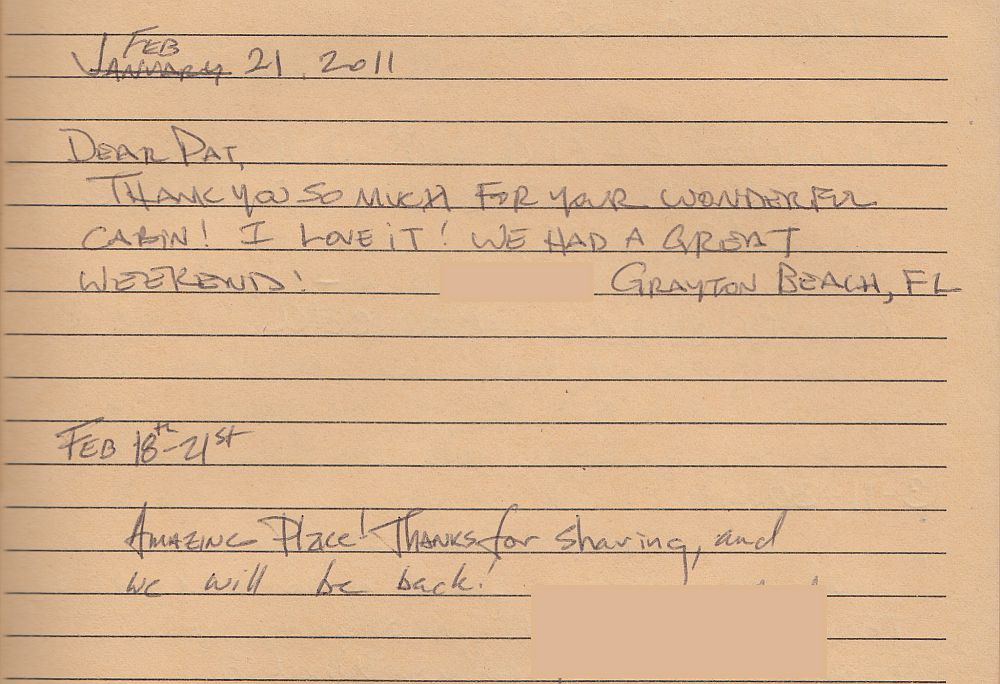 FEB
January 21, 2011
DEAR PAT,
THANK YOU SO MUCH FOR YOUR WONDERFUL
CABIN! I LOVE IT! WE HAD A GREAT
WEEKEND! GRAYTON BEACH, FL
FEB 18th-21st
AMAZING Place! THANKS for sharing, and
we will be back!